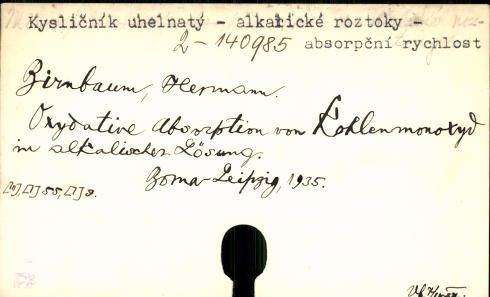 Kysličník uhelnatý - alkalické roztoky -
2-140985 absorpční rychlost
Birnbaum, Hermann.
Oxydative Absorption von Kohlenmonoxyd
in alkalischer Lösung.
Borna-Leipzig, 1935.
[4], [1] 55, [1] s.